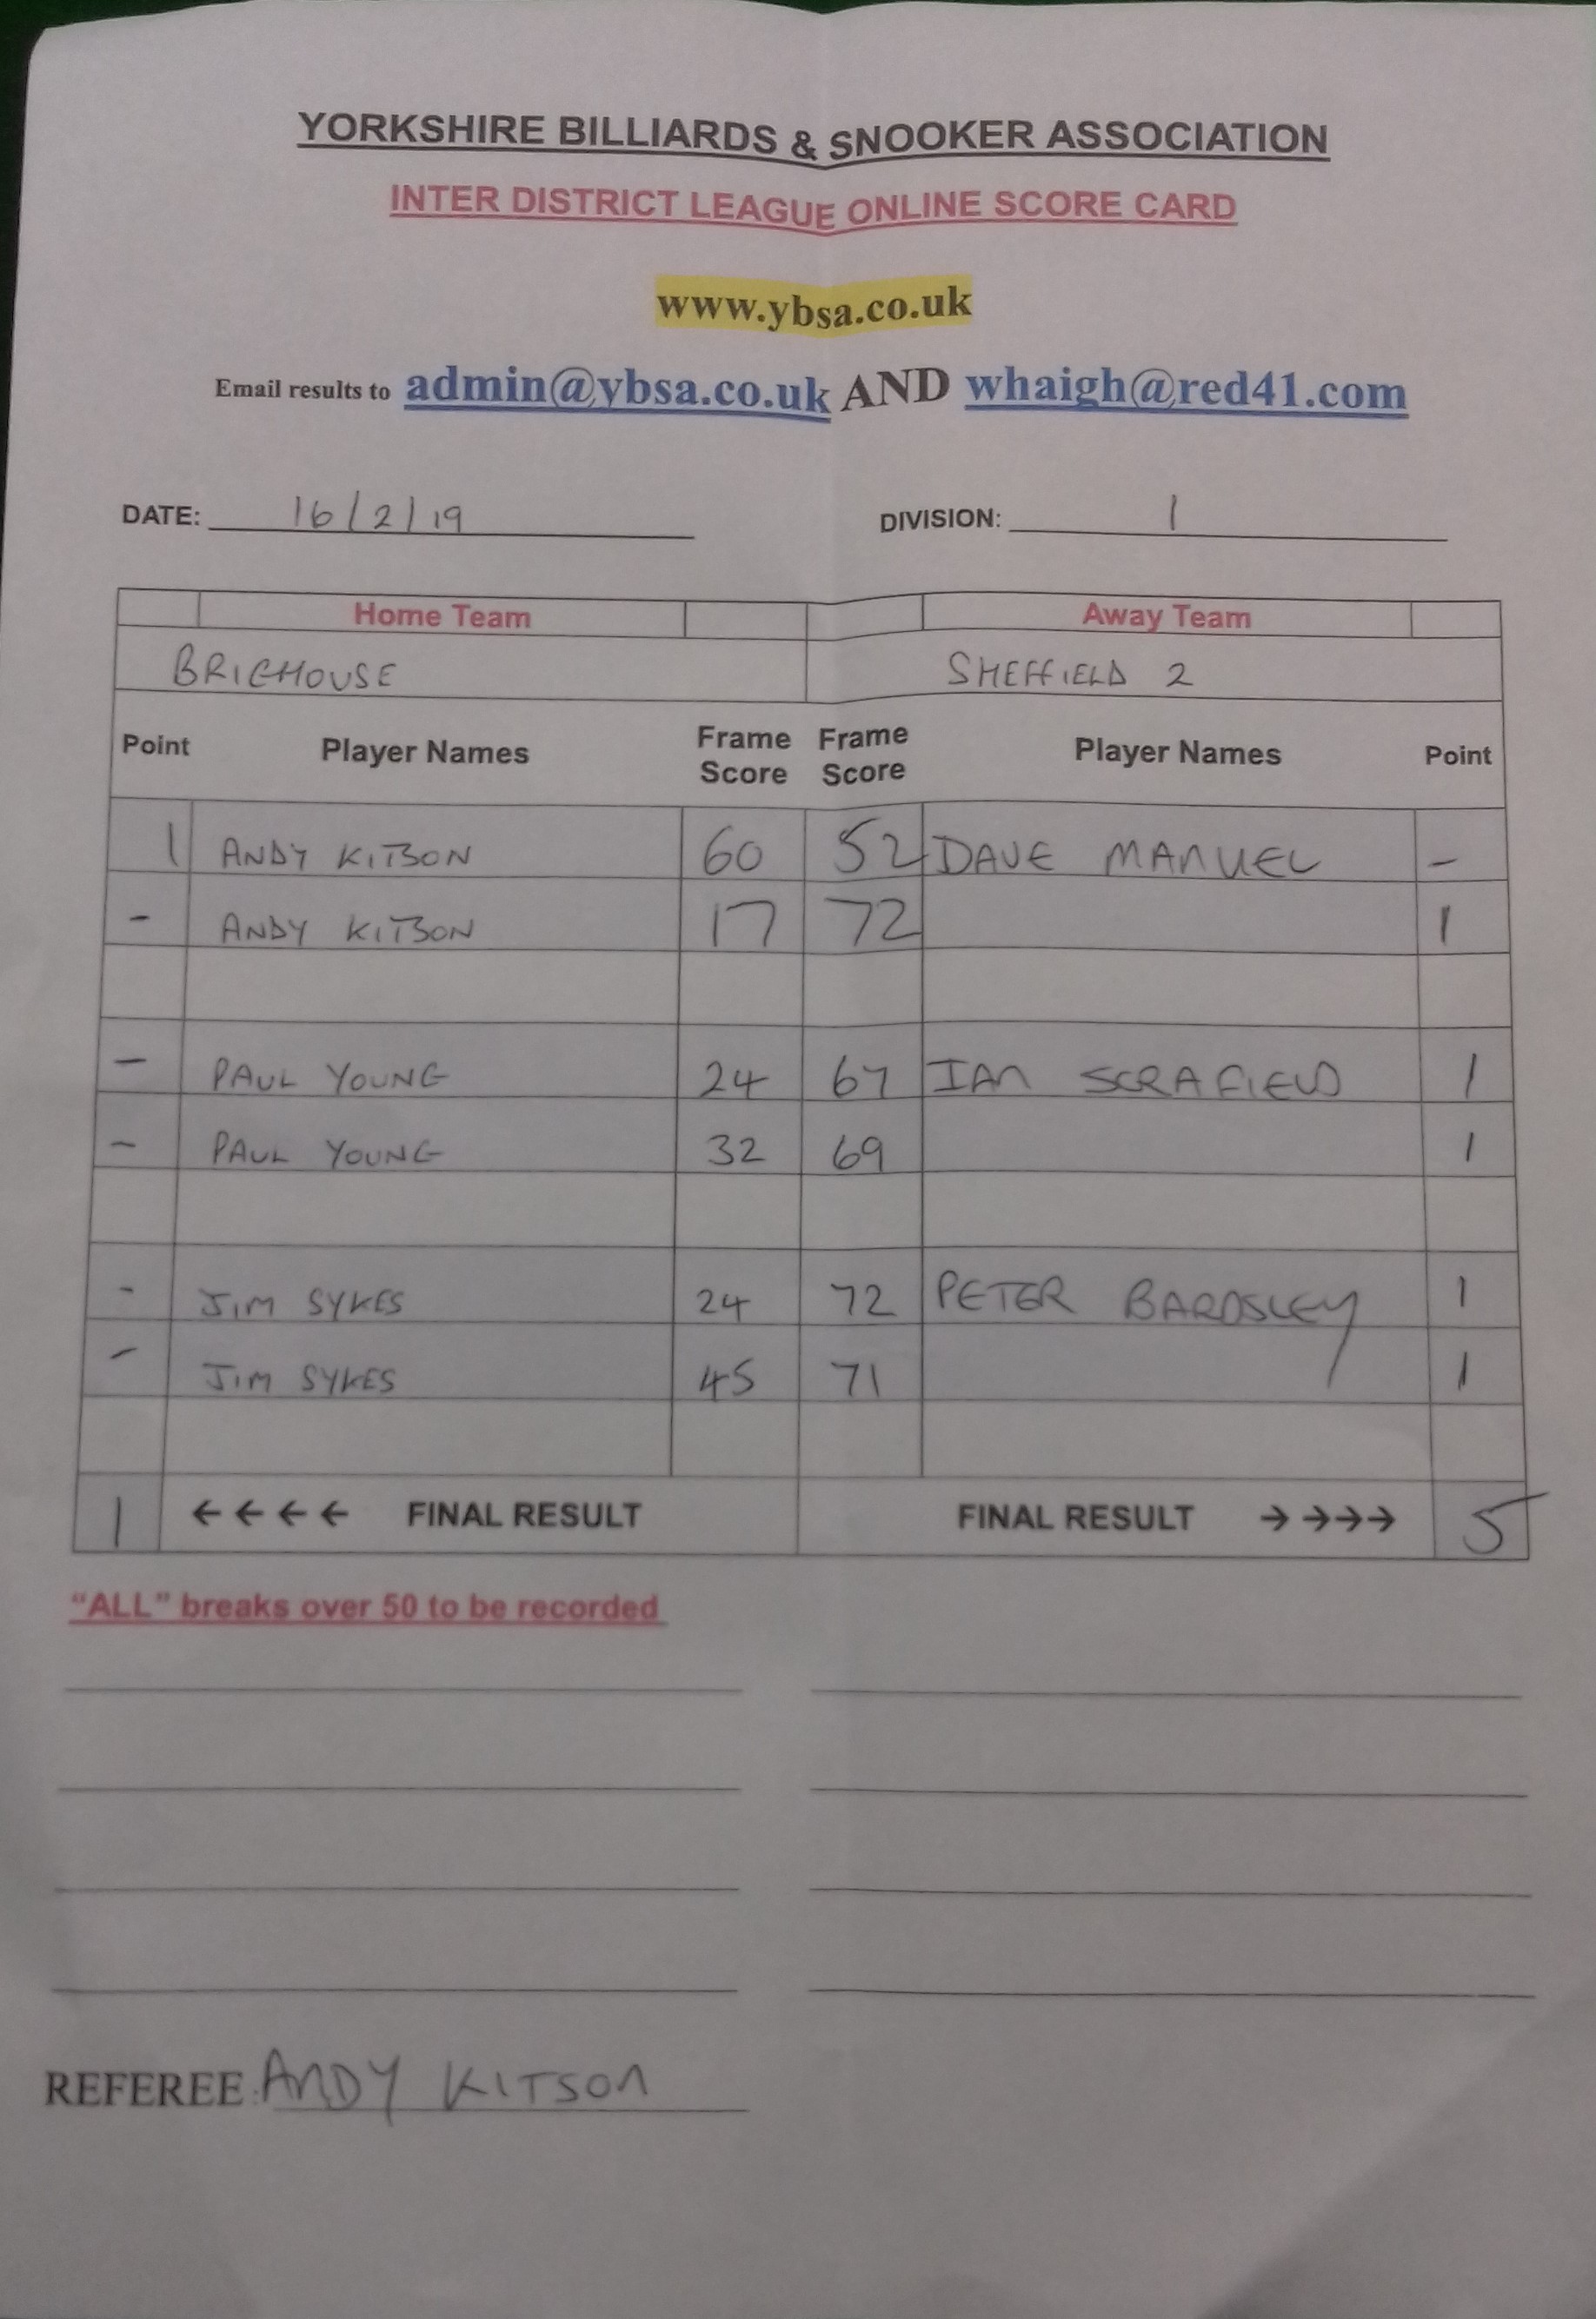 YORKSHIRE BILLIARDS & SNOOKER ASSOCIATION
INTER DISTRICT LEAGUE ONLINE SCORE CARD
www.ybsa.co.uk
Email results to admin@ybsa.co.uk AND whaigh@red41.com
DATE: 16/2/19 DIVISION: 1
Home Team Away Team
BRIGHOUSE SHEFFIELD 2
Point Player Names Frame Score Frame Score Player Names Point
1 ANDY KITSON 60 52 DAVE MANUEL –
– ANDY KITSON 17 72 1
– PAUL YOUNG 24 67 IAN SCRAFIELD 1
– PAUL YOUNG 32 69 1
- JIM SYKES 24 72 PETER BARDSLEY 1
– JIM SYKES 45 71 1
1 ←←←← FINAL RESULT FINAL RESULT →→→→ 5
“ALL” breaks over 50 to be recorded
REFEREE: ANDY KITSON